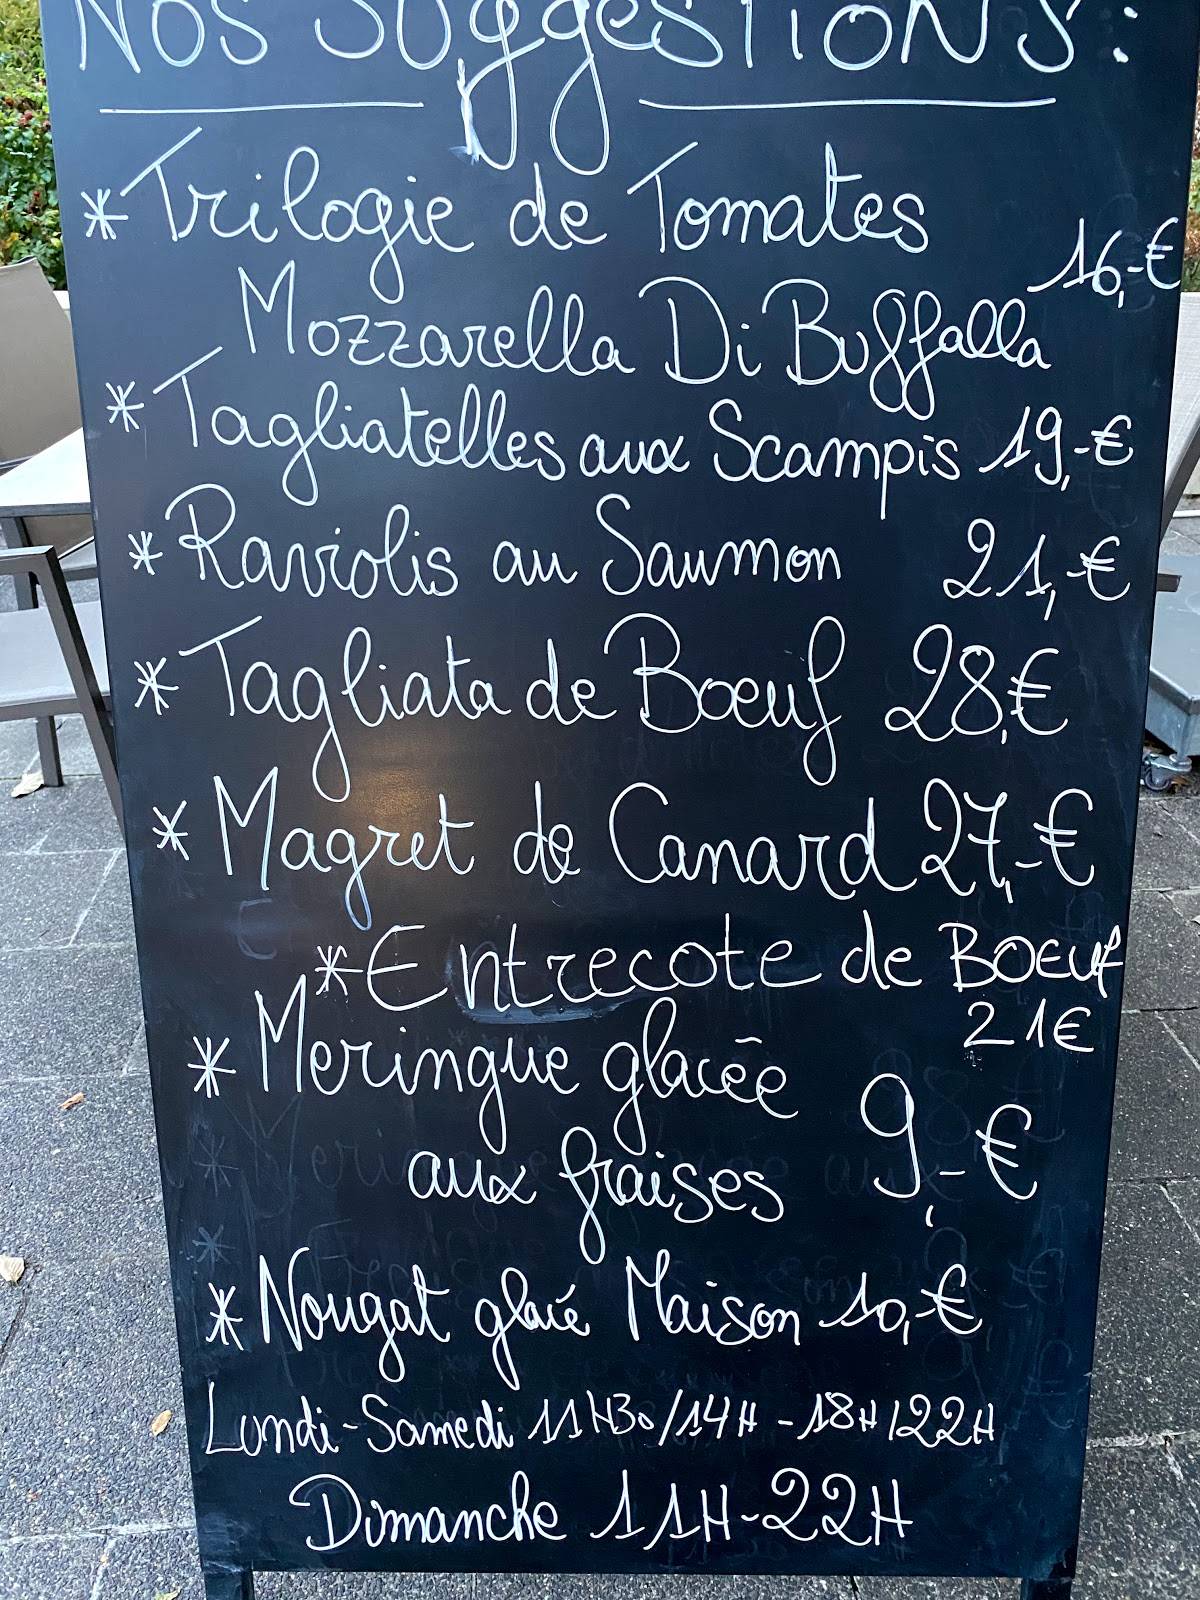 Nos Suggestions :
* Trilogie de Tomates
Mozzarella Di Buffalla 16,-€
* Tagliatelles aux Scampis 19,-€
* Raviolis au Saumon 21,-€
* Tagliata de Boeuf 28,€
* Magret de Canard 27,-€
* Entrecote de Boeuf
21€
* Meringue glacée
aux fraises 9,-€
* Nougat glacé Maison 10,-€
Lundi-Samedi 11H30/14H - 18H/22H
Dimanche 11H-22H